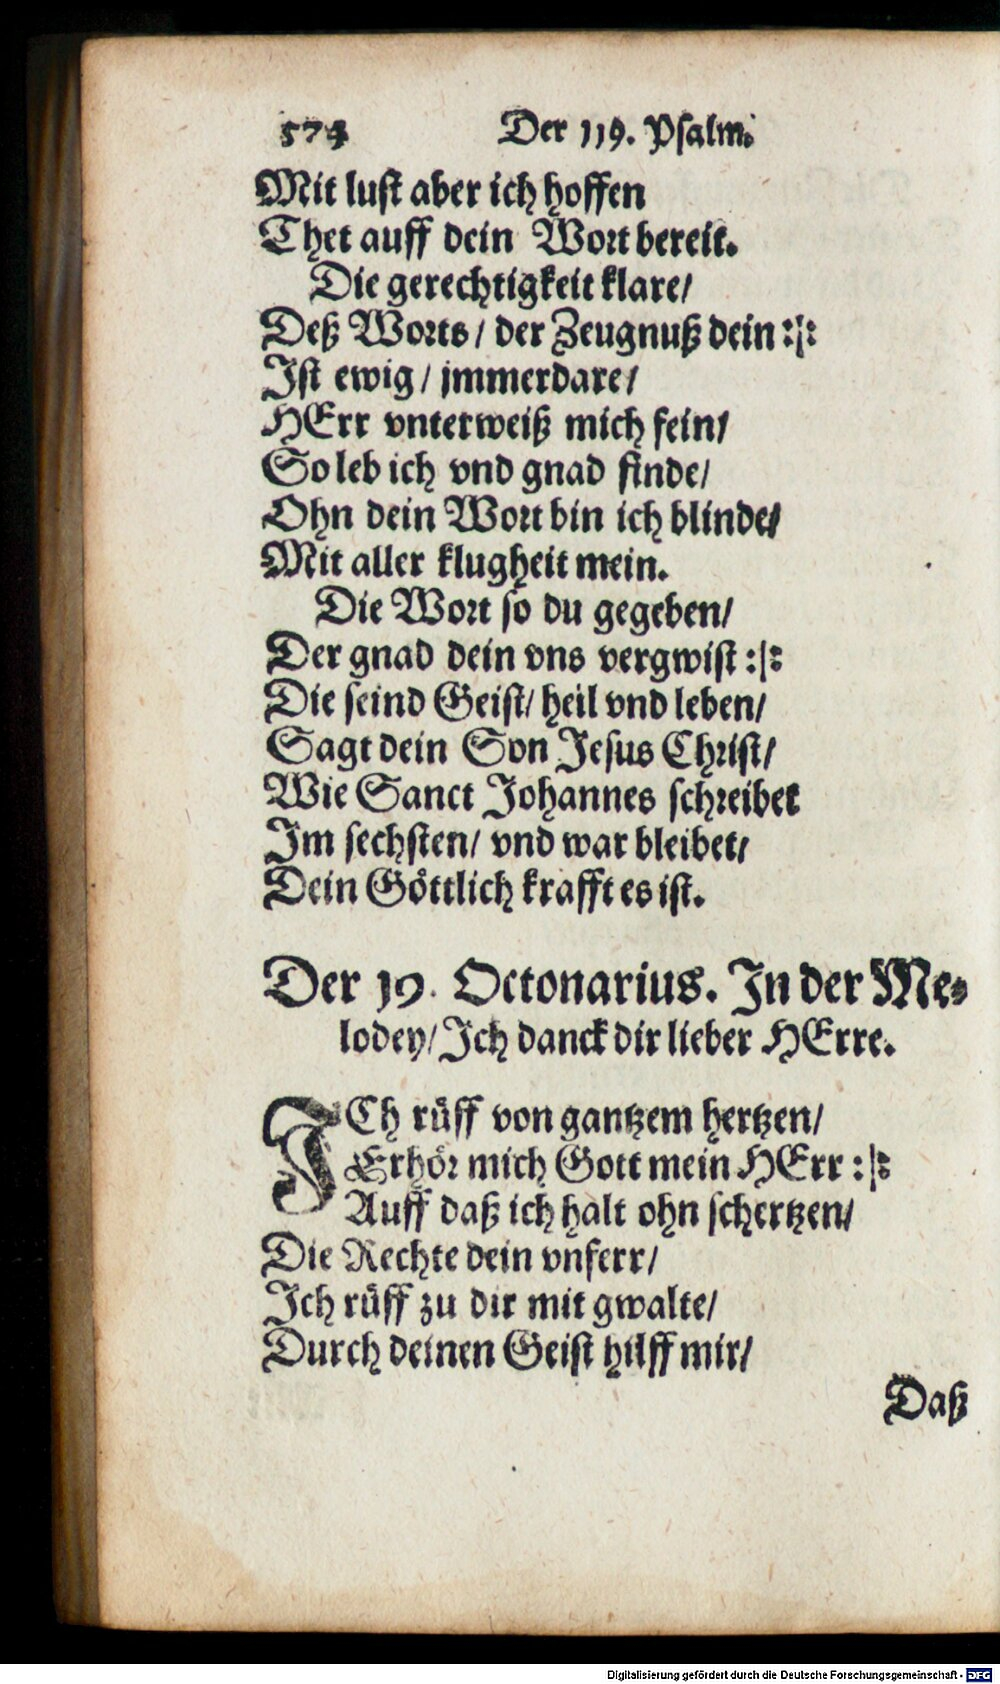 574 Der 119. Psalm.
Mit lust aber ich hoffen
Thet auff dein Wort bereit.
Die gerechtigkeit klare/
Deß Worts / der Zeugnuß dein :|:
Ist ewig / jmmerdare /
HErr vnterweiß mich fein/
So leb ich vnd gnad finde/
Ohn dein Wort bin ich blinde/
Mit aller klugheit mein.
Die Wort so du gegeben/
Der gnad dein vns vergwist :|:
Die seind Geist/ heil vnd leben/
Sagt dein Son Jesus Christ/
Wie Sanct Johannes schreibet
Im sechsten/ vnd war bleibet/
Dein Göttlich krafft es ist.
Der 19. Octonarius. In der Me-
lodey/ Ich danck dir lieber HErre.
ICh rüff von gantzem hertzen/
Erhör mich Gott mein HErr :|:
Auff daß ich halt ohn schertzen/
Die Rechte dein vnferr/
Ich rüff zu dir mit gwalte/
Durch deinen Geist hilff mir/
Daß
Digitalisierung gefördert durch die Deutsche Forschungsgemeinschaft - DFG